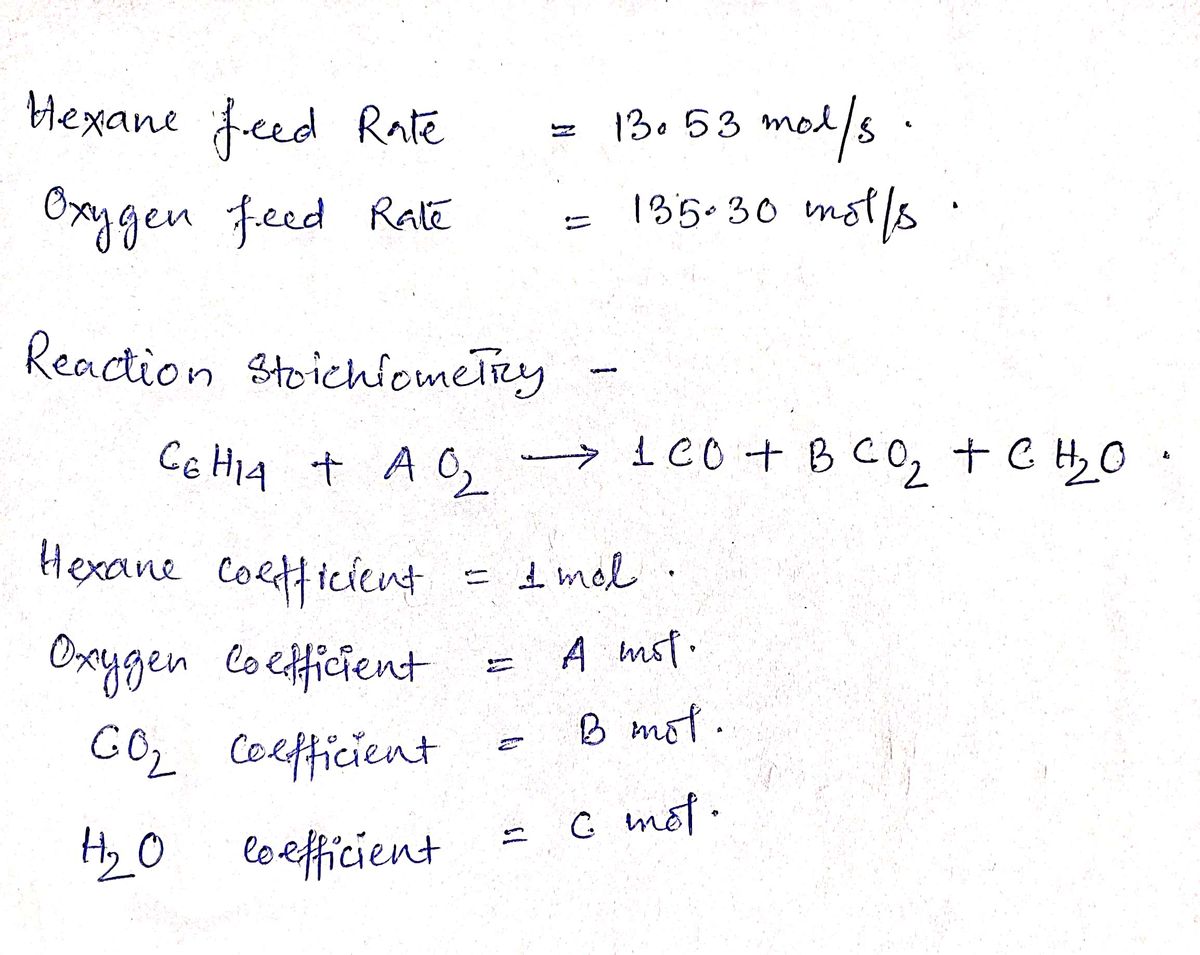 Hexane feed Rate = 13.53 mol/s.
Oxygen feed Rate = 135.30 mol/s.
Reaction Stoichiometry -
C6H14 + A O2 → 1 CO + B CO2 + C H2O.
Hexane Coefficient = 1 mol.
Oxygen Coefficient = A mol.
CO2 Coefficient = B mol.
H2O Coefficient = C mol.